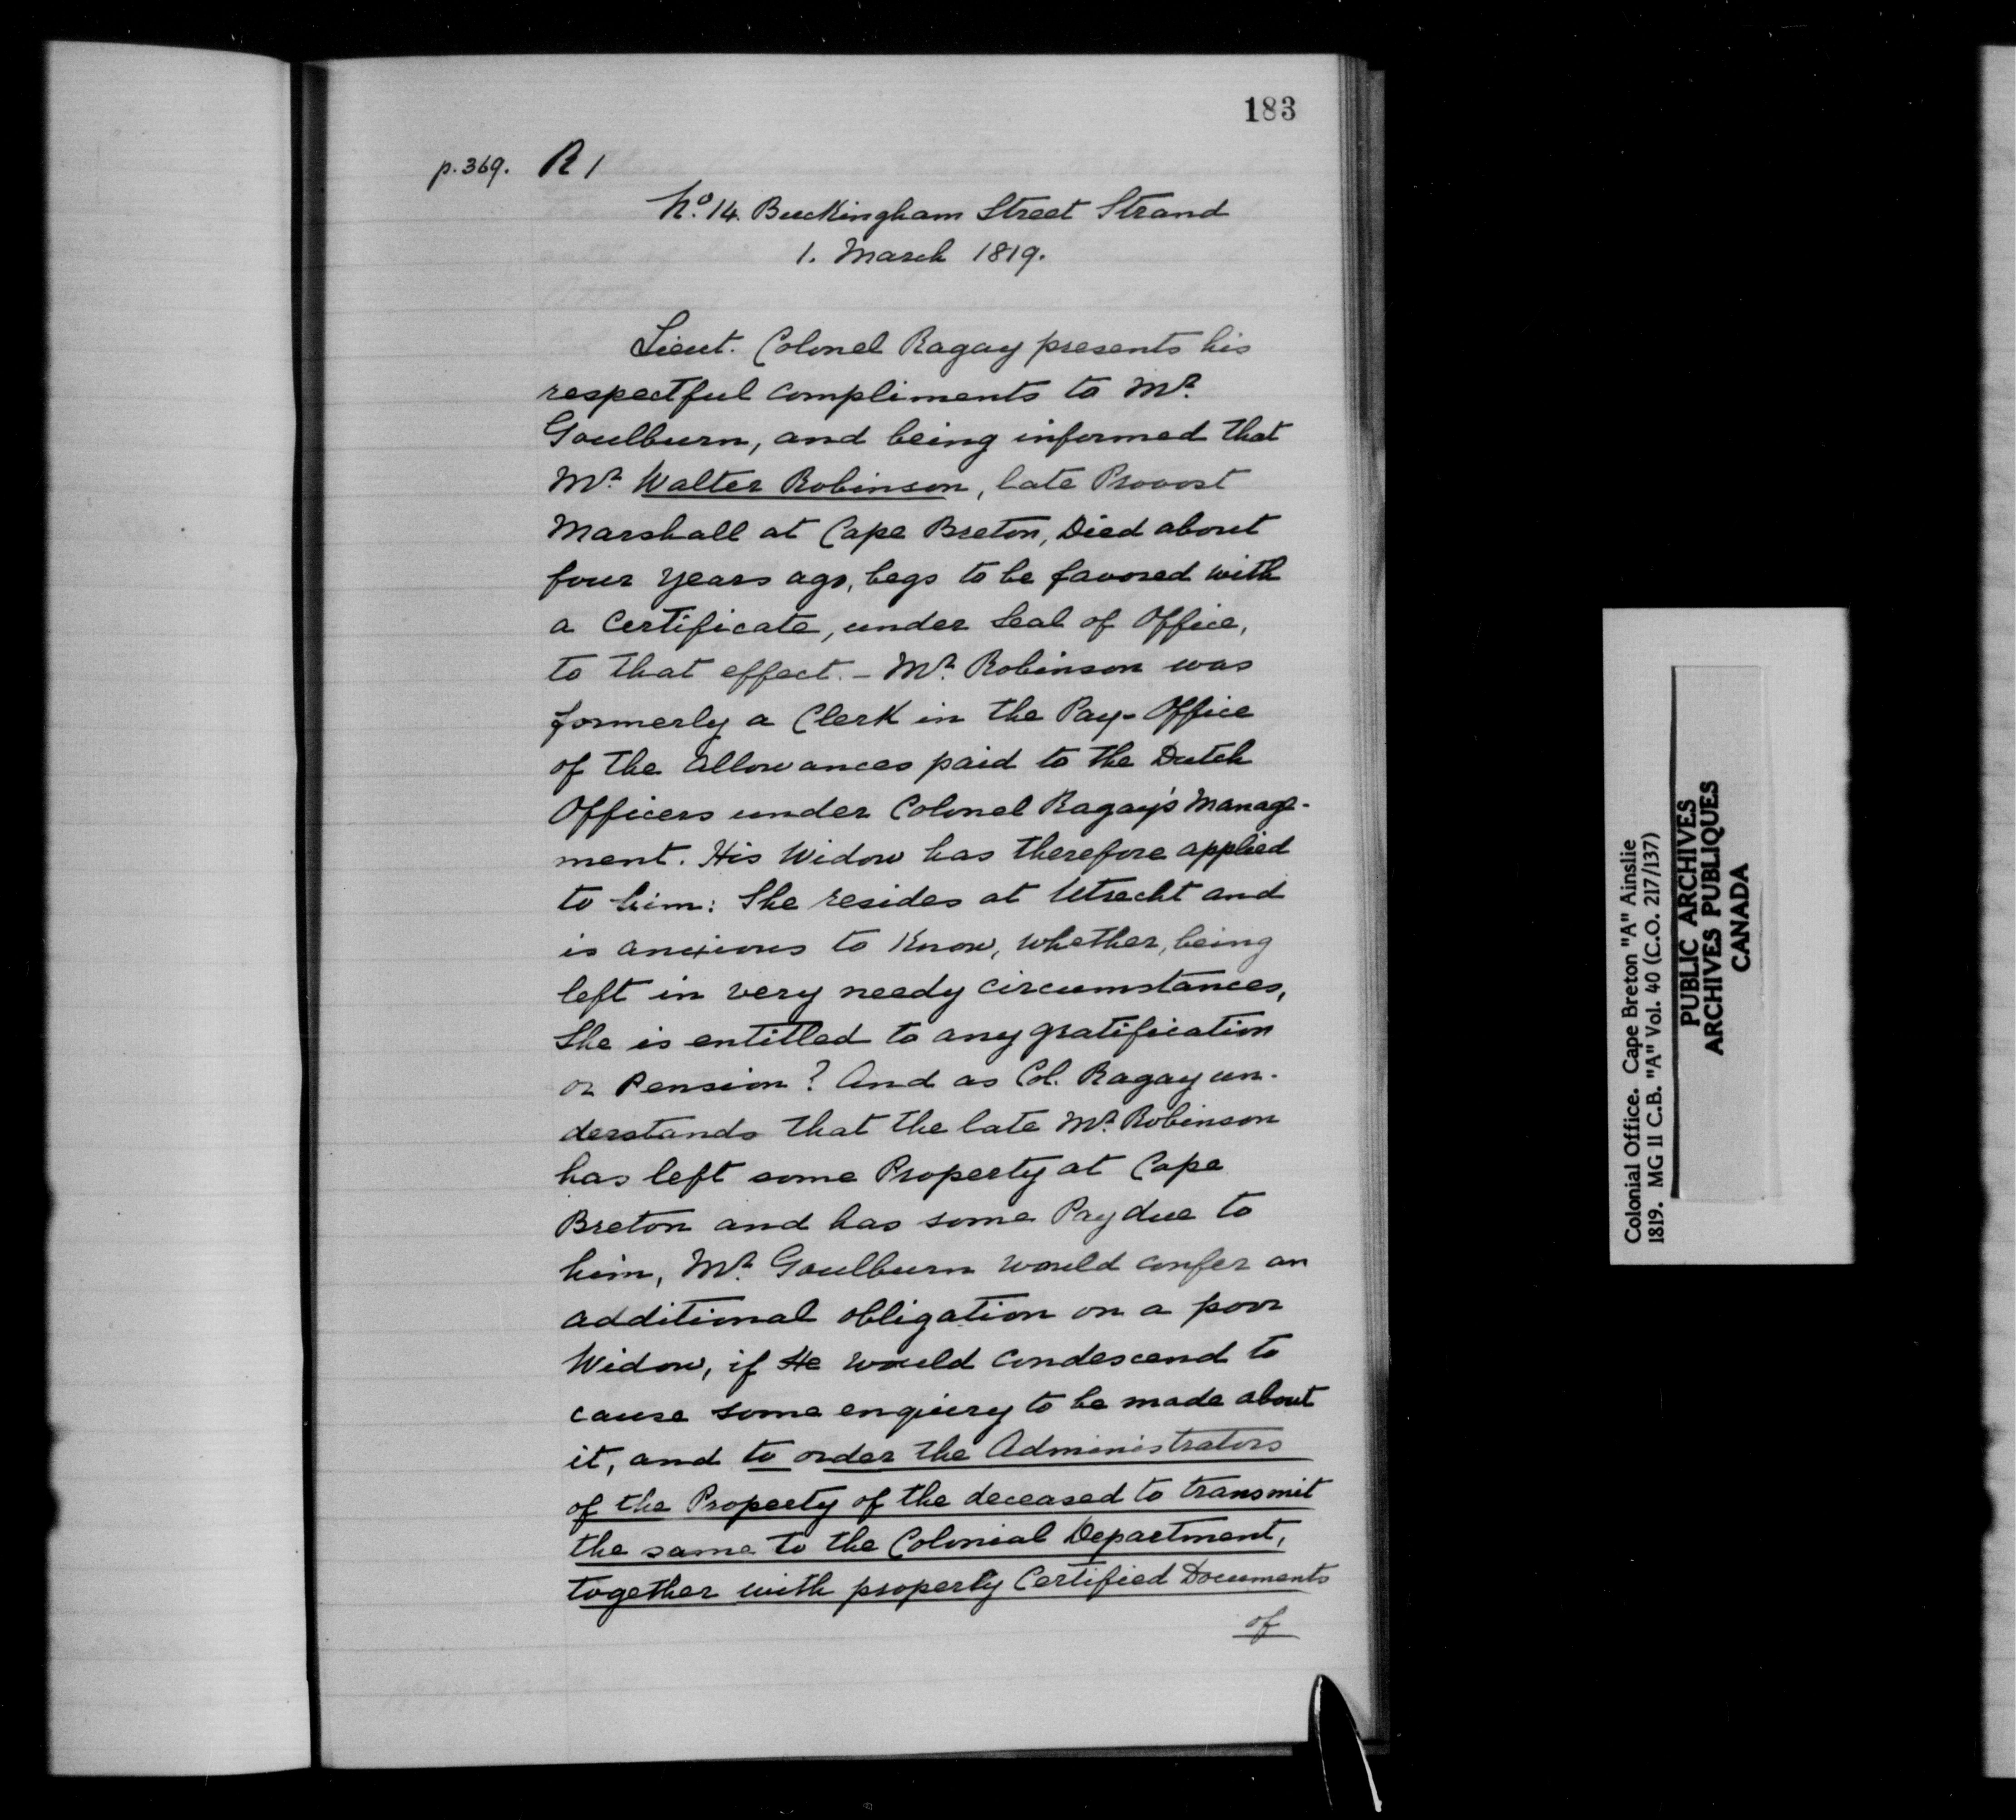 183
p.369. R 1
No. 14. Buckingham Street Strand
1. March 1819.
Lieut. Colonel Ragay presents his
respectful compliments to Mr.
Goulburn, and being informed that
Mr. Walter Robinson, late Provost
Marshall at Cape Breton, Died about
four years ago, begs to be favored with
a Certificate, under Seal of Office,
to that effect. - Mr. Robinson was
formerly a Clerk in the Pay-Office
of the allowances paid to the Dutch
Officers under Colonel Ragay's Manage-
ment. His Widow has therefore applied
to him: She resides at Utrecht and
is anxious to Know, whether, being
left in very needy circumstances,
She is entitled to any gratification
or Pension? And as Col. Ragay un-
derstands that the late Mr. Robinson
has left some Property at Cape
Breton and has some Pay due to
him, Mr. Goulburn would confer an
additional obligation on a poor
Widow, if He would condescend to
cause some enquiry to be made about
it, and to order the Administrators
of the Property of the deceased to transmit
the same to the Colonial Department,
together with properly Certified Documents
of
Colonial Office. Cape Breton "A" Ainslie
1819. MG 11 C.B. "A" Vol. 40 (C.O. 217/137)
PUBLIC ARCHIVES
ARCHIVES PUBLIQUES
CANADA